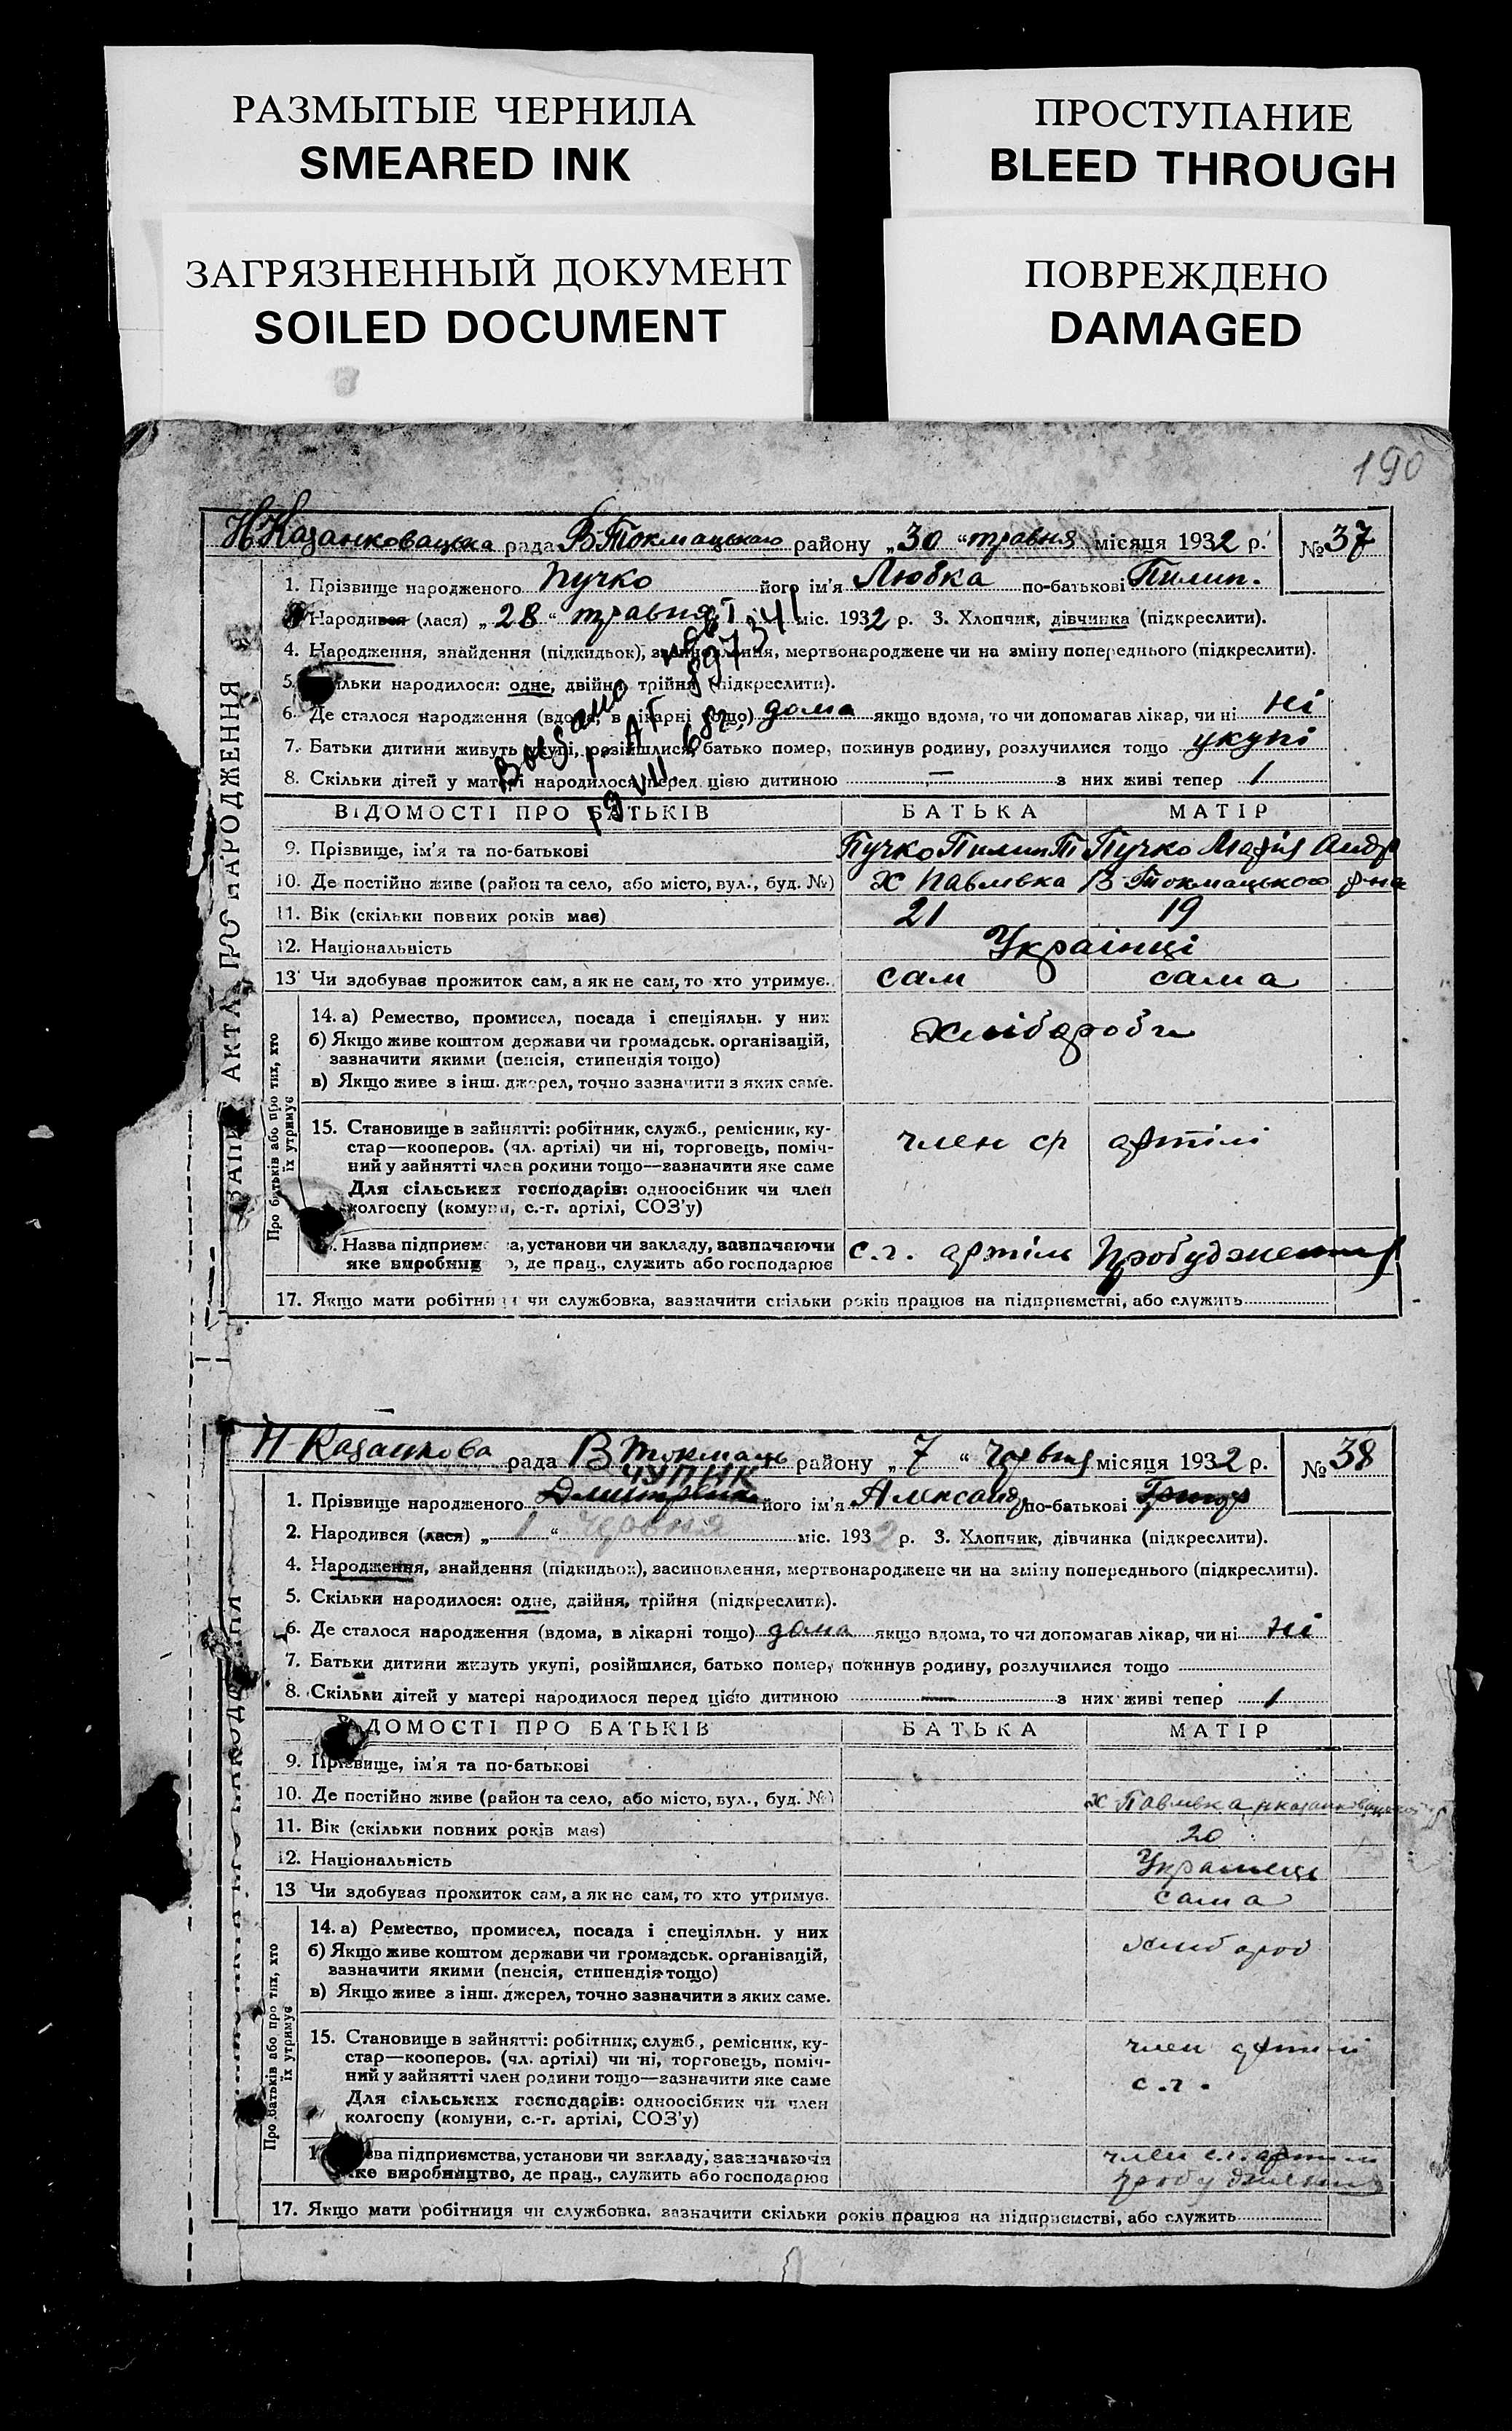 РАЗМЫТЫЕ ЧЕРНИЛА
SMEARED INK
ПРОСТУПАНИЕ
BLEED THROUGH
ЗАГРЯЗНЕННЫЙ ДОКУМЕНТ
SOILED DOCUMENT
ПОВРЕЖДЕНО
DAMAGED
190
Н Казанковацька рада В-Токмацького району „30“ травня місяця 1932 р. № 37
1. Прізвище народженого Пучко його ім'я Любка по-батькові Пилип.
Народився (лася) „28“ травня міс. 1932 р. 3. Хлопчик, дівчинка (підкреслити).
4. Народження, знайдення (підкидьок), засиновлення, мертвонароджене чи на зміну попереднього (підкреслити).
5. Скільки народилося: одне, двійня, трійня (підкреслити).
6. Де сталося народження (вдома, в лікарні тощо) дома якщо вдома, то чи допомагав лікар, чи ні ні
7. Батьки дитини живуть укупі, розійшлися, батько помер, покинув родину, розлучилися тощо укупі
8. Скільки дітей у матері народилося перед цією дитиною — з них живі тепер 1
ВІДОМОСТІ ПРО БАТЬКІВ БАТЬКА МАТІР
9. Прізвище, ім'я та по-батькові Пучко Пилип Т Пучко Марія Андр
10. Де постійно живе (район та село, або місто, вул., буд. №) х Павлівка В-Токмацького р-на
11. Вік (скільки повних років має) 21 19
12. Національність Українці
13 Чи здобуває прожиток сам, а як не сам, то хто утримує. сам сама
14. а) Ремество, промисел, посада і спеціяльн. у них хлібороби
б) Якщо живе коштом держави чи громадськ. організацій,
зазначити якими (пенсія, стипендія тощо)
в) Якщо живе з інш. джерел, точно зазначити з яких саме.
15. Становище в зайнятті: робітник, служб., ремісник, ку-
стар—кооперов. (чл. артілі) чи ні, торговець, поміч- член ср артілі
ний у зайнятті член родини тощо—зазначити яке саме
Для сільських господарів: одноосібник чи член
колгоспу (комуни, с.-г. артілі, СОЗ'у)
Назва підприємства, установи чи закладу, зазначаючи с.г. артіль Пробудження
яке виробництво, де прац., служить або господарює
17. Якщо мати робітниця чи службовка, зазначити скільки років працює на підприємстві, або служить
ЗАПИС АКТА ПРО НАРОДЖЕННЯ
Про батьків або про тих, хто
їх утримує
Н-Казанкова рада В Токмаць району „7“ Червня місяця 1932 р. № 38
ЧУПИК
1. Прізвище народженого його ім'я Александр по-батькові Григор
2. Народився (лася) „1“ червня міс. 1932 р. 3. Хлопчик, дівчинка (підкреслити).
4. Народження, знайдення (підкидьок), засиновлення, мертвонароджене чи на зміну попереднього (підкреслити).
5. Скільки народилося: одне, двійня, трійня (підкреслити).
6. Де сталося народження (вдома, в лікарні тощо) дома якщо вдома, то чи допомагав лікар, чи ні ні
7. Батьки дитини живуть укупі, розійшлися, батько помер, покинув родину, розлучилися тощо
8. Скільки дітей у матері народилося перед цією дитиною — з них живі тепер 1
ВІДОМОСТІ ПРО БАТЬКІВ БАТЬКА МАТІР
9. Прізвище, ім'я та по-батькові
10. Де постійно живе (район та село, або місто, вул., буд. №) х Павлівка
11. Вік (скільки повних років має) 20
12. Національність Українець
13 Чи здобуває прожиток сам, а як не сам, то хто утримує. сама
14. а) Ремество, промисел, посада і спеціяльн. у них хлібороб
б) Якщо живе коштом держави чи громадськ. організацій,
зазначити якими (пенсія, стипендія тощо)
в) Якщо живе з інш. джерел, точно зазначити з яких саме.
15. Становище в зайнятті: робітник, служб., ремісник, ку-
стар—кооперов. (чл. артілі) чи ні, торговець, поміч- член артілі
ний у зайнятті член родини тощо—зазначити яке саме с.г.
Для сільських господарів: одноосібник чи член
колгоспу (комуни, с.-г. артілі, СОЗ'у)
Назва підприємства, установи чи закладу, зазначаючи член с.г. артілі
яке виробництво, де прац., служить або господарює Пробудження
17. Якщо мати робітниця чи службовка, зазначити скільки років працює на підприємстві, або служить
Про батьків або про тих, хто
їх утримує